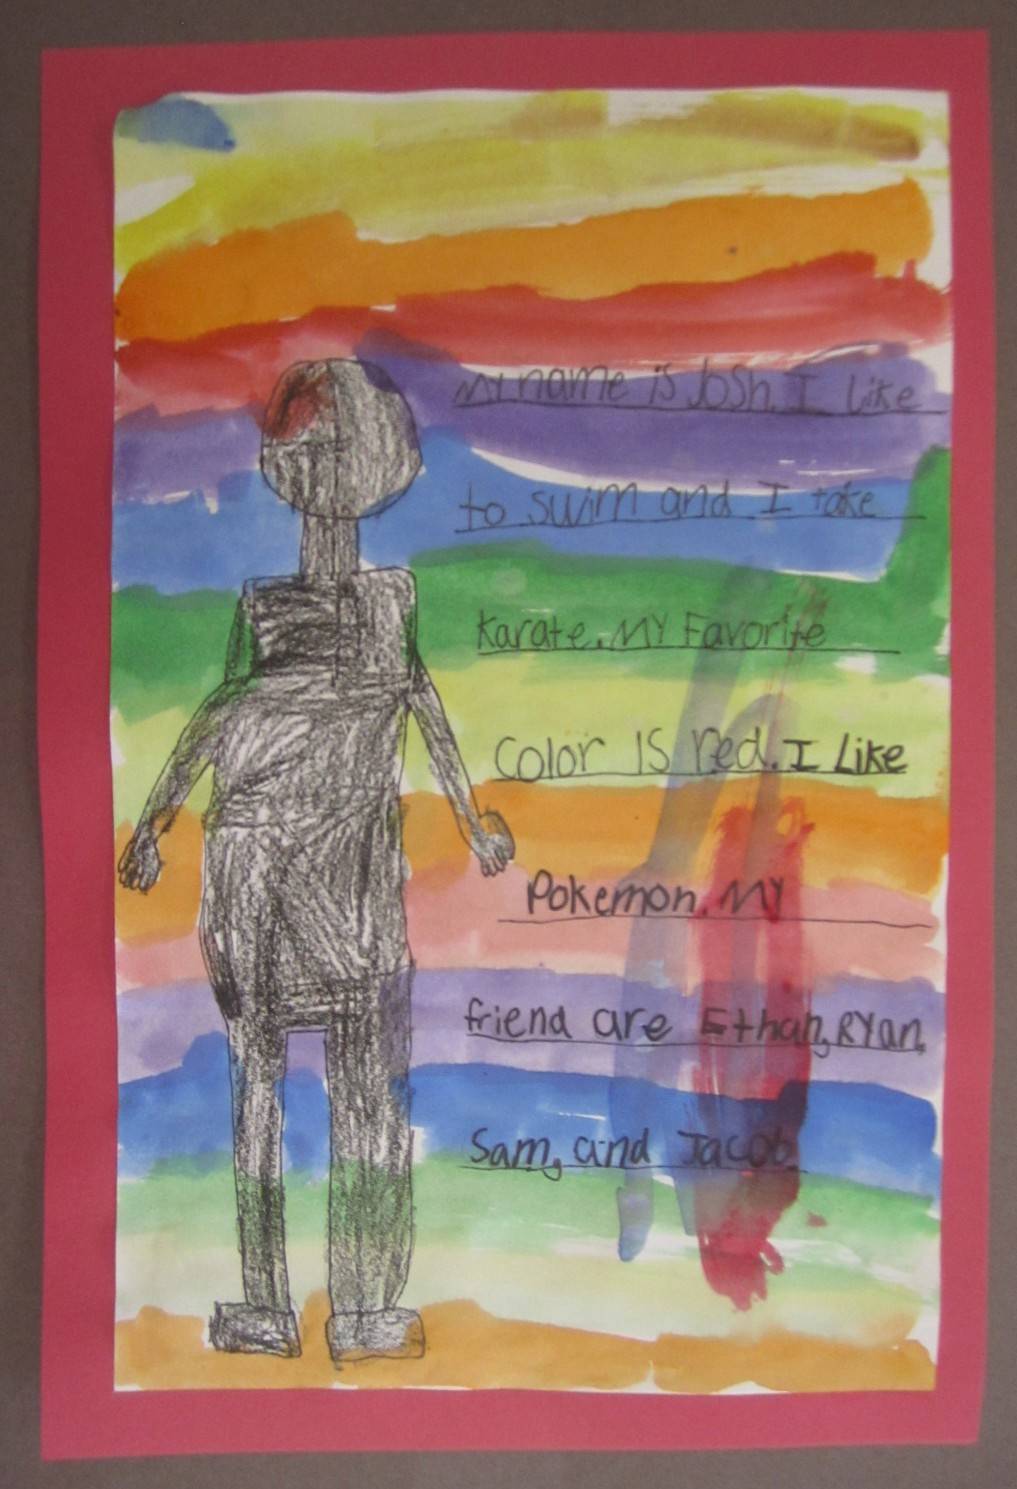 My name is Josh. I like
to swim and I take
Karate. MY Favorite
Color IS red. I Like
Pokemon. MY
friend are Ethan, RYan,
Sam, and Jacob.